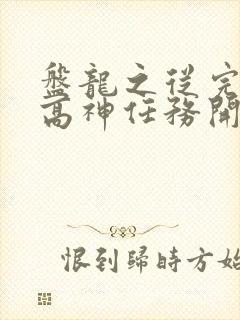 盤龍之從完
高神任務開
恨到歸時方始